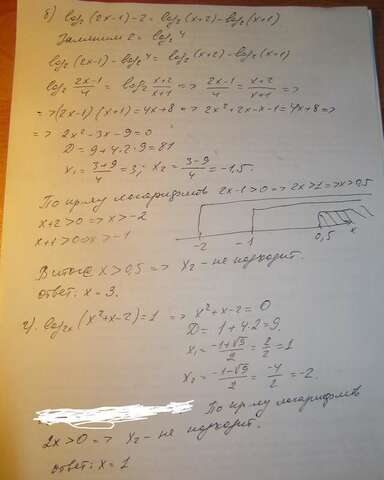 б) log₂(2x-1)-2 = log₂(x+2)-log₂(x+1)
Заменим 2 = log₂4
log₂(2x-1)-log₂4 = log₂(x+2)-log₂(x+1)
log₂ (2x-1)/4 = log₂ (x+2)/(x+1) => (2x-1)/4 = (x+2)/(x+1) =>
=>(2x-1)(x+1)=4x+8 => 2x²+2x-x-1=4x+8 =>
=> 2x²-3x-9=0
D = 9+4·2·9=81
x₁ = (3+9)/4 = 3; x₂ = (3-9)/4 = -1,5.
По пр-лу логарифмов 2x-1>0 => 2x>1 => x>0,5
x+2>0 => x>-2
x+1>0 => x>-1
-2 -1 0,5 x
В итоге x>0,5 => x₂ - не подходит.
ответ: x=3.
г). log₂ₓ(x²+x-2)=1 => x²+x-2=0
D= 1+4·2=9.
x₁= (-1+√9)/2 = 2/2 =1
x₂= (-1-√9)/2 = -4/2 = -2.
По пр-лу логарифмов
2x>0 => x₂ - не подходит.
ответ: x=1